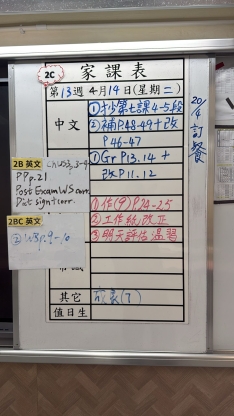 2C 家課表
第13週 4月19日(星期二)
中文
①抄第七課4-5段
②補P.48-49+改
P.46-47
20/4 訂餐
2B 英文
PP p.21
Post Exam WS corr.
Dict sign+corr.
①Gr P.13.14+
改P.11.12
2BC 英文
①作(9)P.24-25
②工作紙改正
③明天評估溫習
其它
值日生